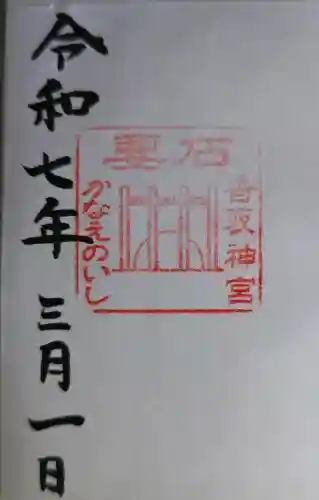 令和七年 三月一日
要石
香取神宮
かなえのいし